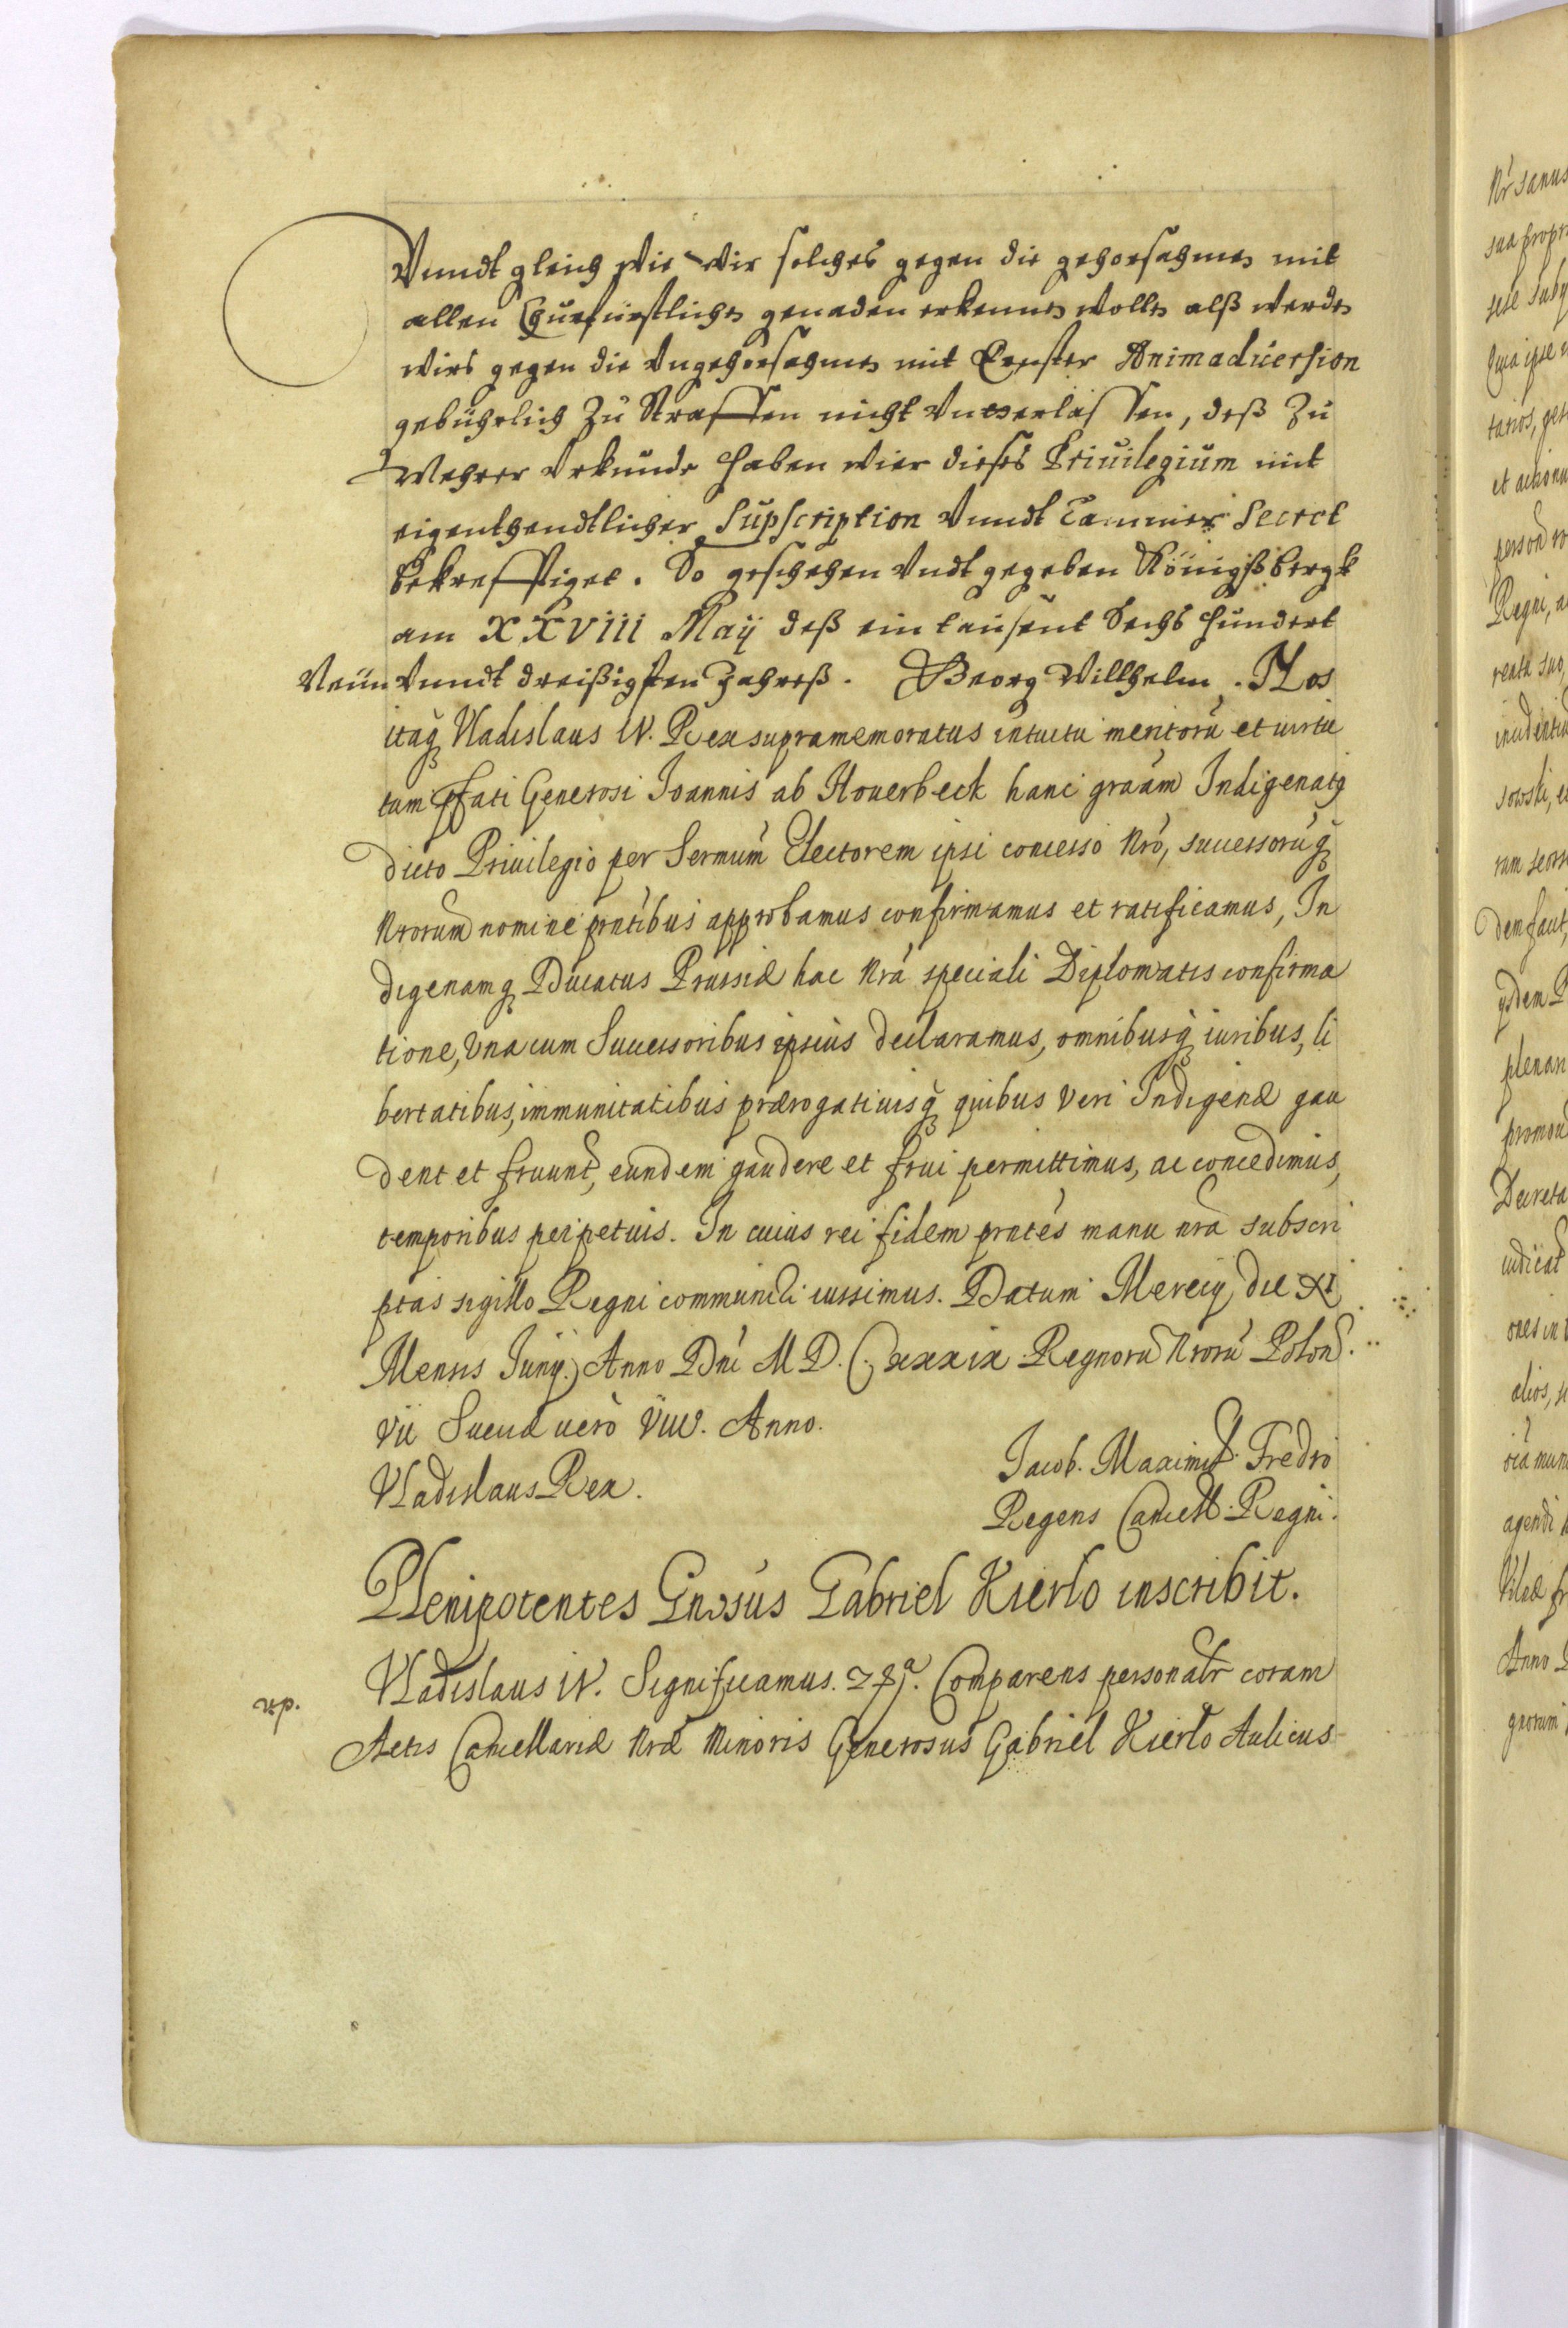 Vnndt gleich wie wir solches gegen die gehorsahmen mit
allen Churfürstlichen genaden erkennen wollen alß werden
wirs gegen die Vngehorsahmen mit Ernster Animaduersion
gebührlich Zu Straffen nicht Vnterlassen, deß Zu
Wahrer Vrkunde haben wier dieses Priuilegium mit
eigenthendtlicher Supscription Vnndt Cammer Secret
bekrefftiget. So geschehen Vndt gegeben Königßbergk
am XXVIII Maÿ deß ein tausent Sechs hundert
Neün Vnndt dreißigsten Jahreß. Georg Willhelm. Nos
itaq Vladislaus IV. Rex supramemoratus intuitu meritorũ et uirtu
tum pfati Generosi Ioannis ab Houerbeck hanc graam Indigenatq
dicto Priuilegio per Sermum Electorem ipsi concesso Nro, successorũq
Nrorum nomine pntibus approbamus confirmamus et ratificamus, In
digenamq Ducatus Prussiæ hac Nra speciali Diplomatis confirma
tione, Vna cum Successoribus ipsius declaramus, omnibusq iuribus, li
bertatibus, immunitatibus prærogatiuisq quibus Veri Indigenæ gau
dent et fruunt, eundem gaudere et frui permittimus, ac concedimus,
temporibus perpetuis. In cuius rei fidem pntes manu nra subscri
ptas sigillo Regni communiri iussimus. Datum Mereciy die XI
Mensis Iunÿ. Anno Dni M D. C. xxxix Regnorũ Nrorũ Polon.
VII Sueciæ uerò VIII. Anno.
Vladislaus Rex.
Jacob. Maximil. Fredro
Regens Cancell. Regni.
Plenipotentes Gnosus Gabriel Kierlo inscribit.
Vladislaus IV. Significamus. Comparens personalr coram
Actis Cancellariæ Nræ Minoris Generosus Gabriel Kierlo Aulicus